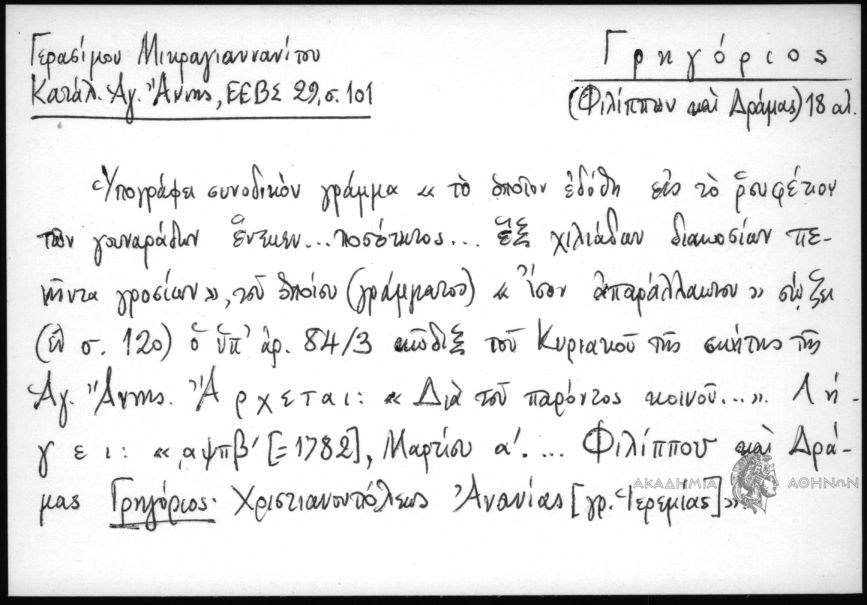 Γερασίμου Μικραγιαννανίτου
Κατάλ. Ἁγ. Ἄννης, ΕΕΒΣ 29, σ. 101
Γρηγόριος
(Φιλίππων καὶ Δράμας) 18 αἰ.
Ὑπογράφει συνοδικὸν γράμμα « τὸ ὁποῖον ἐδόθη εἰς τὸ ῥουφέτιον
τῶν γουναράδων ἕνεκεν... ποσότητος... ἓξ χιλιάδων διακοσίων πε-
νῆντα γροσίων », τοῦ ὁποίου (γράμματος) « ἴσον ἀπαράλλακτον » σῴζει
(ἐν σ. 120) ὁ ὑπ' ἀρ. 84/3 κῶδιξ τοῦ Κυριακοῦ τῆς σκήτης τῆς
Ἁγ. Ἄννης. Ἄρχεται: « Διὰ τοῦ παρόντος κοινοῦ... ». Λή-
γει: « ͵αψπβ´ [= 1782], Μαρτίου α´. ... Φιλίππου καὶ Δρά-
μας Γρηγόριος· Χριστιανουπόλεως Ἀνανίας [γρ. Ἱερεμίας] »
ΑΚΑΔΗΜΙΑ ΑΘΗΝΩΝ